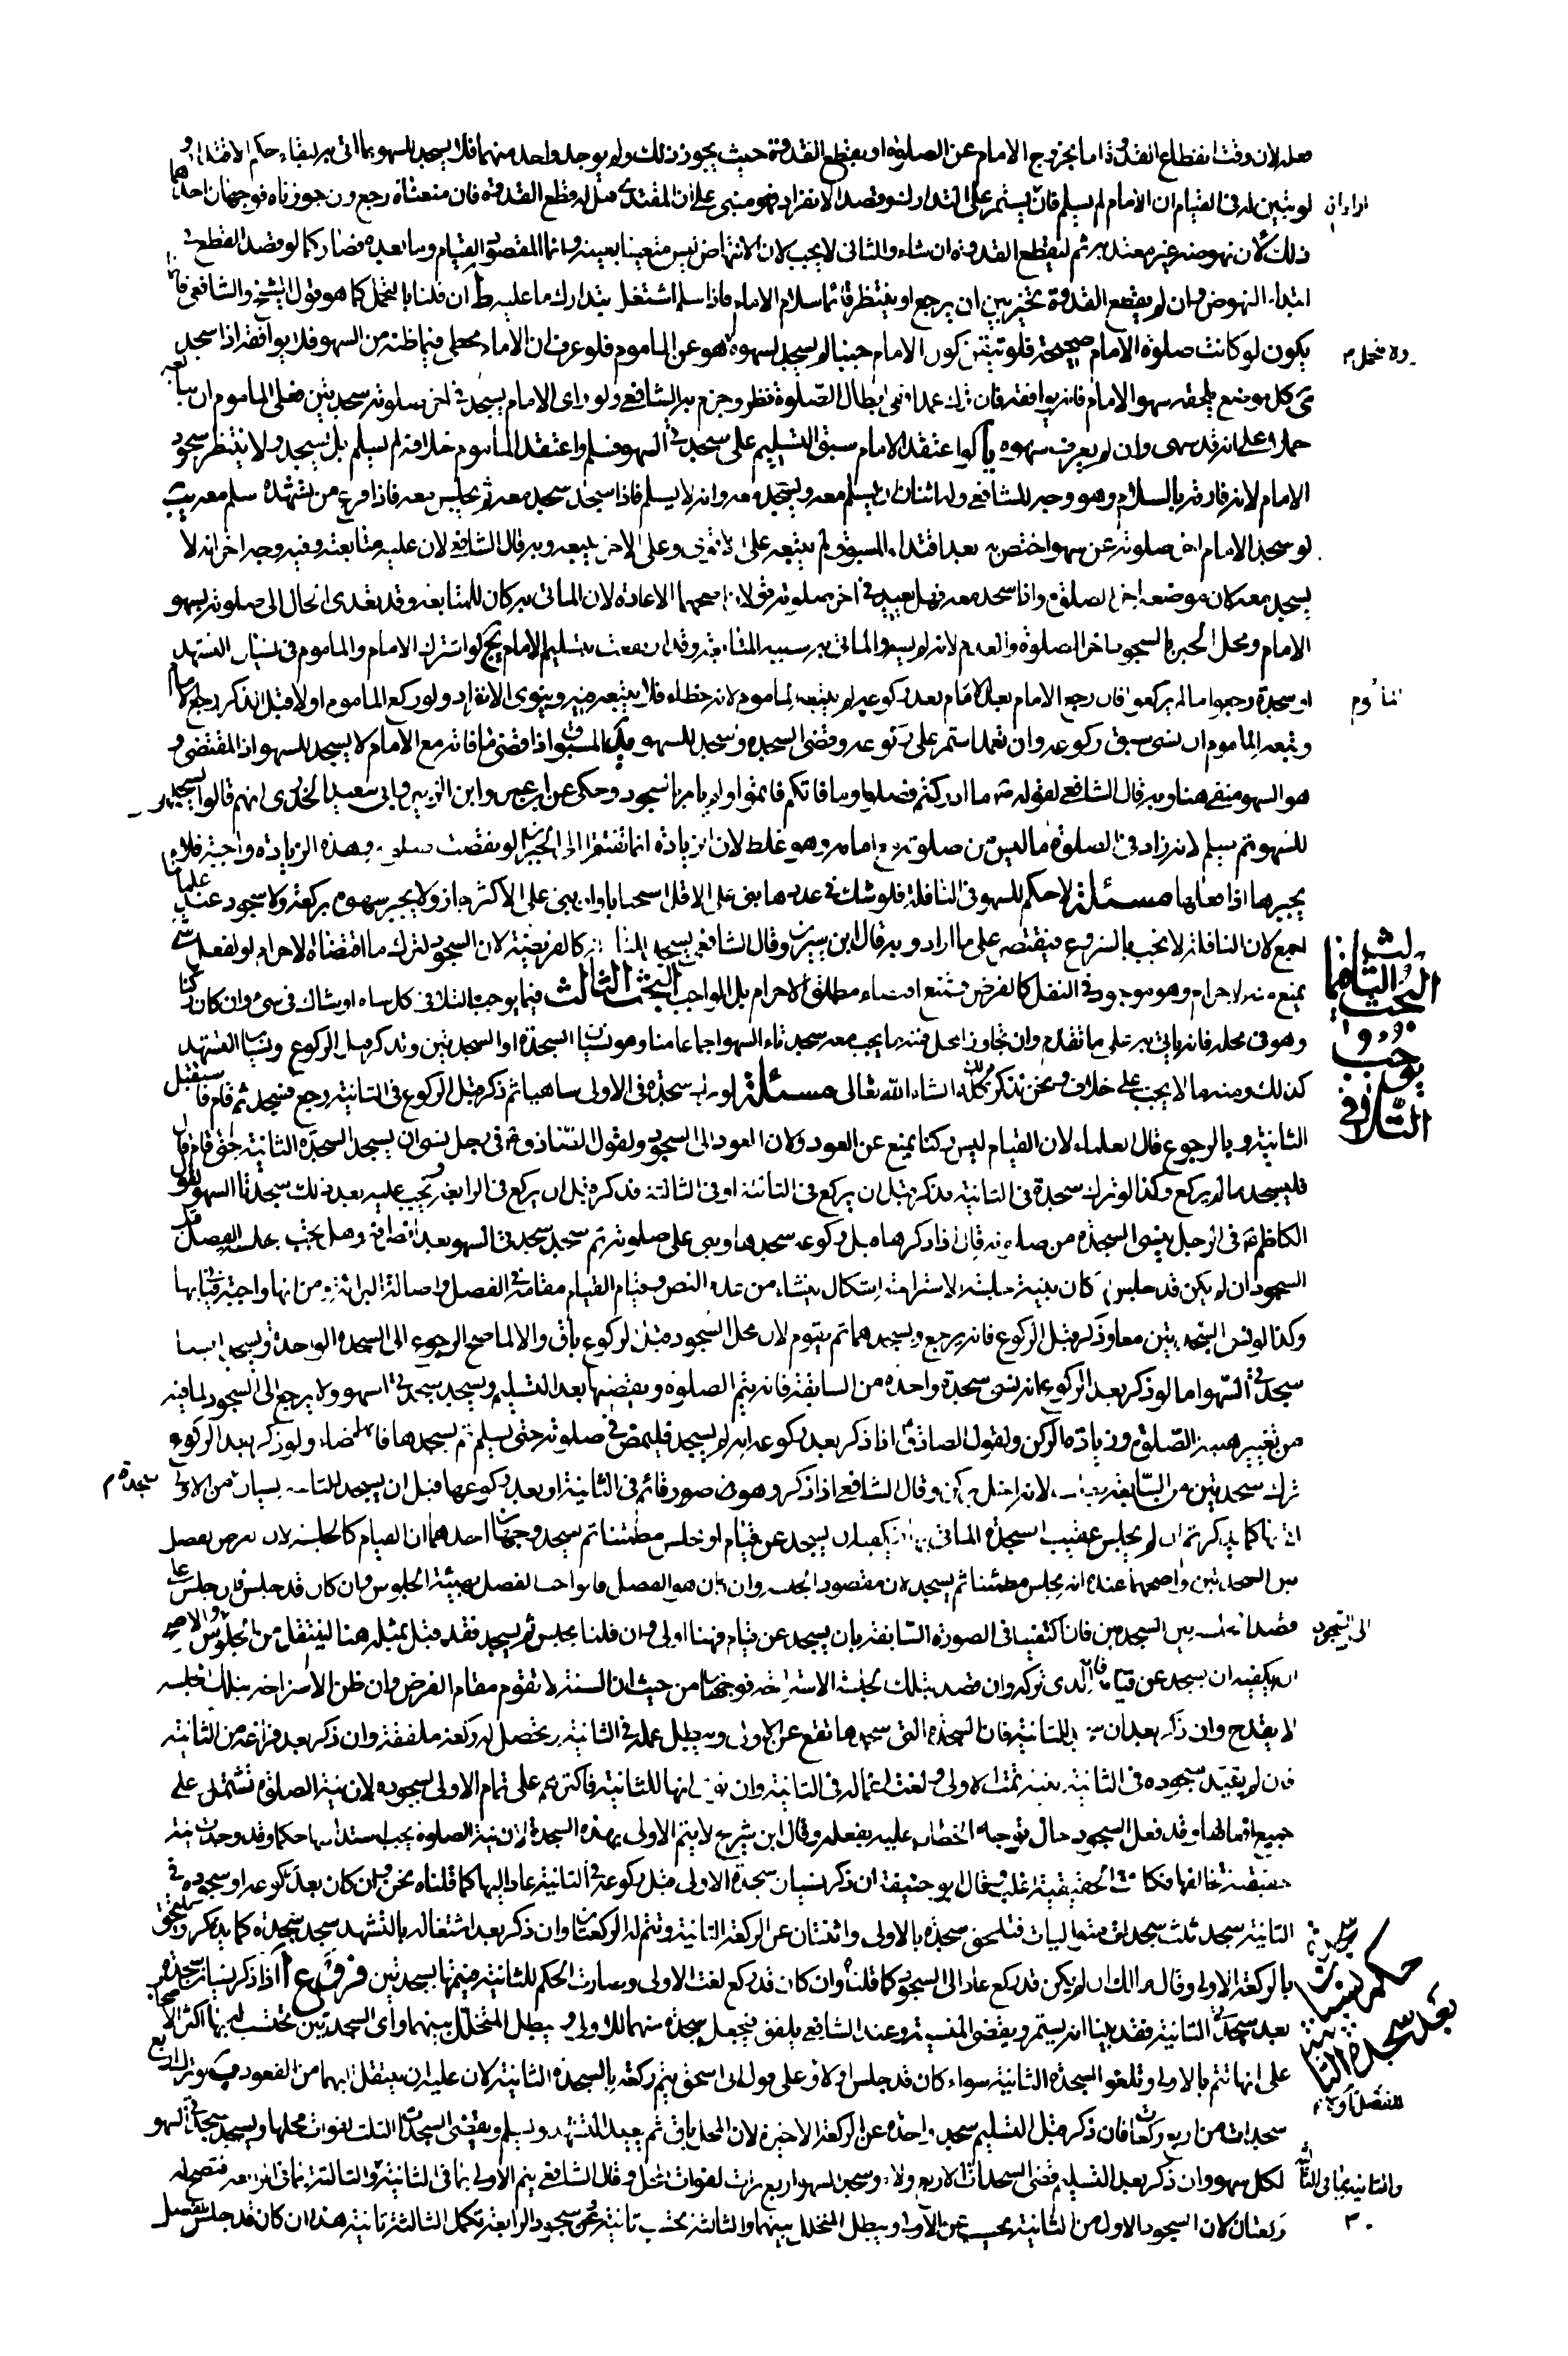 فعله لان وقت انقطاع القدوة اما بخروج الامام عن الصلوة او بقطع القدوة حيث يجوز ذلك ولم يوجد واحد منهما فلا يسجد للسهو بما اتى به لبقاء حكم الاقتداء و
لو تبين له فى القيام ان الامام لم يسلم فان لم يستمر على التدارك وقصد الانفراد فهو مبنى على ان المقتدى هل له قطع القدوة فان منعناه رجع وان جوزناه فوجهان احدهما
ذلك لان نهوضه غير معتد به ثم ليقطع القدوة ان شاء والثانى لا يجب لان الانتهاض ليس متعينا بعينه وانما المقصود القيام وما بعده فصار كما لو قصد القطع فى
ابتداء النهوض وان لم يقطع القدوة تخير بين ان يرجع او ينتظر قائما سلام الامام فاذا سلم اشتغل بتدارك ما عليه ط ان قلنا بالتحمل كما هو قول الشيخ والشافعى فانما
يكون لو كانت صلوة الامام صحيحة فلو تبين كون الامام جنبا لم يسجد لسهوه هو عن الماموم فلو عرف ان الامام مخطى فيما ظنه من السهو فلا يوافقه اذا سجد
ى كل موضع يلحقه سهو الامام فانه يوافقه فان ترك عمدا ففى ابطال الصلوة نظر وجزم به الشافعى ولو راى الامام يسجد فى اخر صلوته سجدتين فعلى الماموم ان يتابعه
حملا على انه قد سهى وان لم يعرف سهوه يا لو اعتقد الامام سبق التسليم على سجدتى السهو فسلم واعتقد الماموم خلافه لم يسلم بل يسجد ولا ينتظر سجود
الامام لانه فارقه بالسلام وهو وجه للشافعى وله اثنان ان يسلم معه ويسجد معه وانه لا يسلم فاذا سجد سجد معه ثم يجلس معه فاذا فرغ من تشهده سلم معه يب
لو سجد الامام اخر صلوته عن سهو اختص به بعد اقتداء المسبوق لم يتبعه على الاقوى وعلى الاخر يتبعه وبه قال الشافعى لان عليه متابعته وفيه وجه اخر انه لا
يسجد معه لان موضعه اخر الصلوة واذا سجد معه فهل يعيد فى اخر صلوته قولان اصحهما الاعادة لان الماتى به كان للمتابعة وقد تعدى الخلل الى صلوته بسهو
الامام ومحل الجبر بالسجود اخر الصلوة والعدم لانه لم يسهو والماتى به سببه المتابعة وقد ارتفعت بتسليم الامام يج لو اشترك الامام والماموم فى نسيان التشهد
او سجدة رجعوا ما لم يركعوا فان رجع الامام بعد ركوعه لم يتبعه الماموم لانه خطاء فلا يتبعه فيه وينوى الانفراد ولو ركع الماموم اولا قبل الذكر رجع الامام
ويتبعه الماموم ان نسى سبق ركوعه وان تعمد استمر على ركوعه وقضى السجدة وسجد للسهو يد المسبوق اذا قضى ما فاته مع الامام لا يسجد للسهو اذ المقتضى و
هو السهو منفى هنا وبه قال الشافعى لقوله ع ما ادركتم فصلوا وما فاتكم فاتموا ولم يامر بالسجود وحكى عن ابن عمر وابن الزبير وابى سعيد الخدرى انهم قالوا يسجد
للسهو ثم يسلم لانه زاد فى الصلوة ما ليس من صلوته مع امامه وهو غلط لان الزيادة انما تفتقر الى الجبران لو نقصت صلوته وهذه الزيادة واجبة فلا
يجبرها اذا فعلها مسئلة لا حكم للسهو فى النافلة فلو شك فى عددها بنى على الاقل استحبابا وان بنى على الاكثر جاز ولا يجبر سهوه بركعة ولا سجود عند علمائنا
اجمع لان النافلة لا تجب بالشروع فيقتصر على ما اراد وبه قال ابن سيرين وقال الشافعى يسجد للنافلة كالفريضة لان السجود لترك ما اقتضاه الاحرام او لفعل ما
يمنع منه الاحرام وهو موجود فى النفل كالفرض ونمنع اقتضاء مطلق الاحرام بل الواجب البحث الثالث فيما يوجب التلافى كل ساه او شاك فى شىء وان كان ركنا
وهو فى محله فانه ياتى به على ما تقدم وان تجاوز المحل فمنه ما يجب معه سجدتا السهو اجماعا منا وهو نسيان السجدة او السجدتين وتذكر قبل الركوع ونسيان التشهد
كذلك ومنه ما لا يجب على خلاف ونحن نذكر ذلك كله انشاء الله تعالى مسئلة لو ترك سجدة فى الاولى ساهيا ثم ذكر قبل الركوع فى الثانية رجع فسجد ثم قام فاستقبل
الثانية وبالرجوع قال العلماء لان القيام ليس ركنا يمنع عن العود ولان العود الى السجود ولقول الصادق ع فى رجل نسى ان يسجد السجدة الثانية حتى قام قال
فليسجد ما لم يركع وكذا لو ترك سجدة فى الثانية فذكر قبل ان يركع فى الثالثة او فى الثالثة فذكر قبل ان يركع فى الرابعة ويجب عليه بعد ذلك سجدتا السهو لقول
الكاظم ع فى الرجل ينسى السجدة من صلوته قال اذا ذكرها قبل ركوعه سجدها وبنى على صلوته ثم سجد سجدتى السهو بعد انصرافه وهل يجب جلسة الفصل قبل
السجود ان لم يكن قد جلس او كان بنية جلسة الاستراحة اشكال ينشاء من عدم النص وقيام القيام مقامه فى الفصل واصالة البرائة ومن انها واجبة فياتى بها
وكذا لو نسى السجدتين معا وذكر قبل الركوع فانه يرجع ويسجدهما ثم يقوم لان محل السجود قبل الركوع باق والا لما صح الرجوع الى السجدة الواحدة ويسجد ايضا
سجدتى السهو اما لو ذكر بعد الركوع انه نسى سجدة واحدة من السابقة فانه يتم الصلوة ويقضيها بعد التسليم ويسجد سجدتى السهو ولا يرجع الى السجود لما فيه
من تغيير هيئة الصلوة وزيادة الركن ولقول الصادق ع اذا ذكر بعد ركوعه انه لم يسجد فليمض فى صلوته حتى يسلم ثم يسجدها فانها قضاء ولو ذكر بعد الركوع
ترك سجدتين من السابقة بطلت لانه اخل بركن وقال الشافعى اذا ذكر وهو فى صورة قائم فى الثانية او بعد ركوعها قبل ان يسجد للثانية نسيان من الاولى
اتى بها كما يذكر ثم ان لم يجلس عقيب السجدة الماتى بها ان يكفيه ان يسجد عن قيام او يجلس مطمئنا ثم يسجد وجهان احدهما ان القيام كالجلسة لان الغرض الفصل
بين السجدتين واصحهما عنده انه يجلس مطمئنا ثم يسجد لان مقصود الجلسة وان كان هو الفصل فالواجب الفصل بهيئة الجلوس وان كان قد جلس فان جلس على
قصد الجلسة بين السجدتين فان اكتفينا فى الصورة السابقة بان يسجد عن قيام فهنا اولى وان قلنا يجلس ثم يسجد فقد قيل بمثله هنا لينتقل من الجلوس والاصح
انه يكفيه ان يسجد عن قيام الذى تركه وان قصد بتلك الجلسة الاستراحة فوجهان من حيث ان السنة لا تقوم مقام الفرض وان ظن الاستراحة بتلك الجلسة
لا يقدح وان ذكر بعد ان سجد للثانية فان السجدة التى سجدها تقع عن الاولى ويبطل عمله فى الثانية ويحصل له ركعة ملفقة وان ذكر بعد فراغه من الثانية
فان لم يقيد سجوده فى الثانية بنية تمت الاولى ولغت اعماله فى الثانية وان نوى انها للثانية فاكثرهم على تمام الاولى بسجوده لان نية الصلوة تشتمل على
جميع افعالها وقد فعل السجود حال توجه الخطاب عليه بفعله وقال ابن شريح لا يتم الاولى بهذه السجدة لان نية الصلوة يجب استدامتها حكما وقد وجدت نية
حقيقية تخالفها فكانت الحقيقية اغلب وقال ابو حنيفة ان ذكر نسيان سجدة الاولى قبل ركوعه فى الثانية عاد اليها كما قلناه نحن وان كان بعد ركوعه او سجوده فى
الثانية سجد ثلث سجدات متواليات فتلحق سجدة بالاولى واثنتان عن الركعة الثانية وتتم له الركعتان وان ذكر بعد اشتغاله بالتشهد سجد سجدة كما يذكر وتلتحق
بالركعة الاولى وقال مالك ان لم يكن قد ركع عاد الى السجود كما قلناه وان كان قد ركع لغت الاولى وصارت الحكم للثانية فيتمها بسجدتين فروع ا اذا ذكر نسيان سجدة
بعد سجدتى الثانية فقد بينا انه يستمر ويقضى المنسية وعند الشافعى يلفق فيجعل سجدة منهما للاولى ويبطل المتخلل بينهما واى السجدتين تحتسب له بها اكثر اصحابه
على انها تتم بالاولى وتلغو السجدة الثانية سواء كان قد جلس او لا وعلى قول ابى اسحق يتم ركعة بالسجدة الثانية لان عليه ان ينتقل اليهما من القعود ب لو ترك اربع
سجدات من اربع ركعات فان ذكر قبل التسليم سجد واحدة عن الركعة الاخيرة لان المحل باق ثم يعيد التشهد ويسلم ويقضى السجدات الثلث لفوات محلها ويسجد سجدتى السهو
لكل سهو وان ذكر بعد التسليم قضى السجدات الاربع ولاء وسجد للسهو اربع مرات لفوات المحل وقال الشافعى يتم الاولى بما فى الثانية والثالثة بما فى الرابعة فتصح له
ركعتان لان السجود الاول من الثانية يحسب عن الاولى ويبطل المتخلل بينهما والثالثة يحتسب ثانية وفى سجود الرابعة تكمل الثالثة ثانية هذا ان كان قد جلس للفصل
ولا نتحمل م
الماموم
البحث الثالث فيما يوجب التلافى
سجدة م
الى السجود
حكم نسيان سجدة بعد سجدة الثانية
والثانية بما فى الثالثة